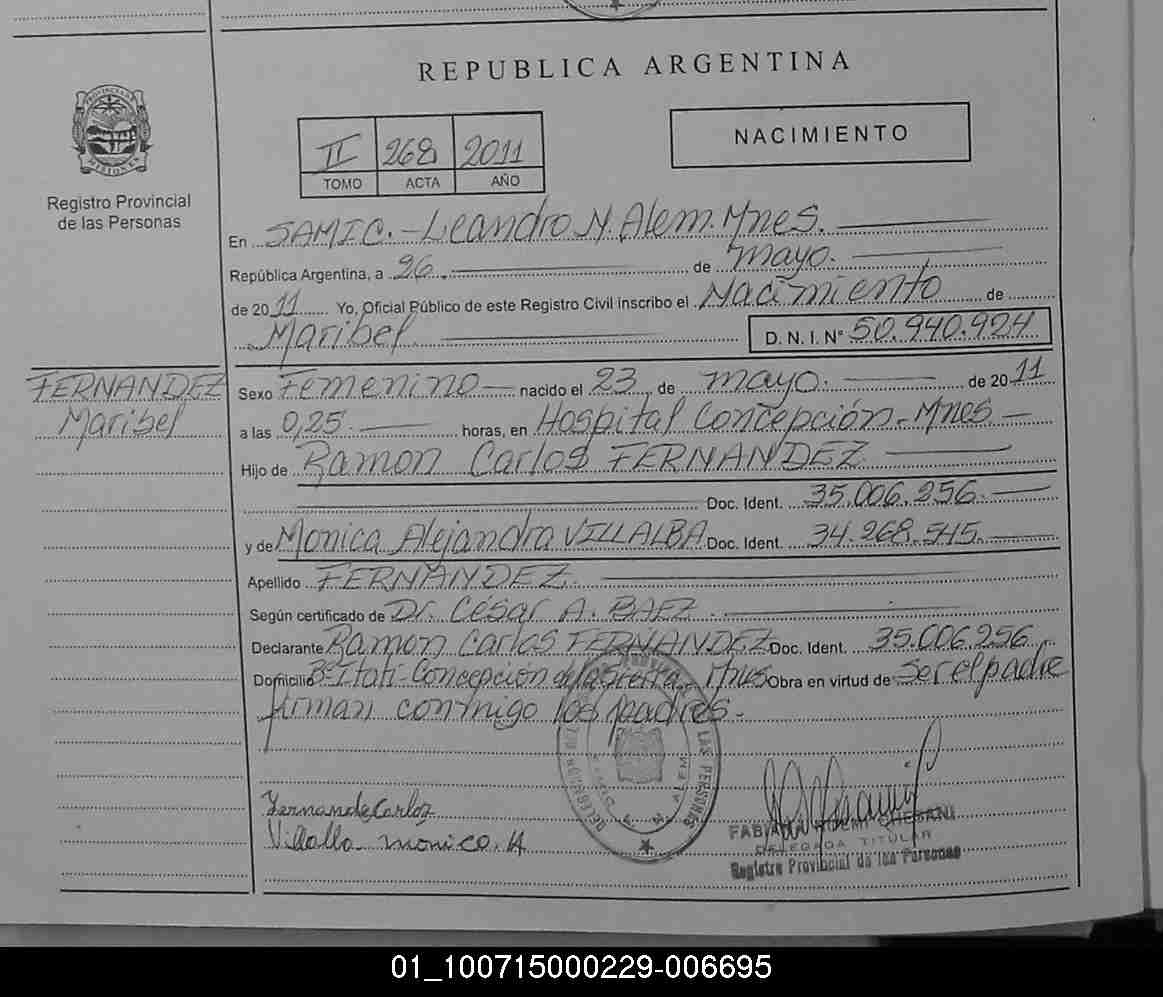 REPUBLICA ARGENTINA
PROVINCIA DE MISIONES
Registro Provincial
de las Personas
II 268 2011
TOMO ACTA AÑO
NACIMIENTO
En SAMIC.-Leandro N. Alem. Mnes.
República Argentina, a 26 de mayo.
de 2011 Yo, Oficial Público de este Registro Civil inscribo el Nacimiento de
Maribel D. N. I. N° 50.940.924
FERNANDEZ
Maribel
Sexo Femenino nacido el 23 de mayo. de 2011
a las 0,25 horas, en Hospital Concepción-Mnes
Hijo de Ramon Carlos FERNANDEZ
Doc. Ident. 35.006.256.
y de Monica Alejandra VILLALBA Doc. Ident. 34.268.545.
Apellido FERNANDEZ.
Según certificado de Dr. César A. BAEZ.
Declarante Ramon Carlos FERNANDEZ Doc. Ident. 35.006.256
Domicilio B° Itati-Concepción de la Sierra. Mnes Obra en virtud de Ser el padre
firman conmigo los padres.
LAS PERSONAS
ALEM
Fernande Carlos
Villalla monica. A
DELEGADA TITULAR
Registro Provincial de las Personas
01_100715000229-006695